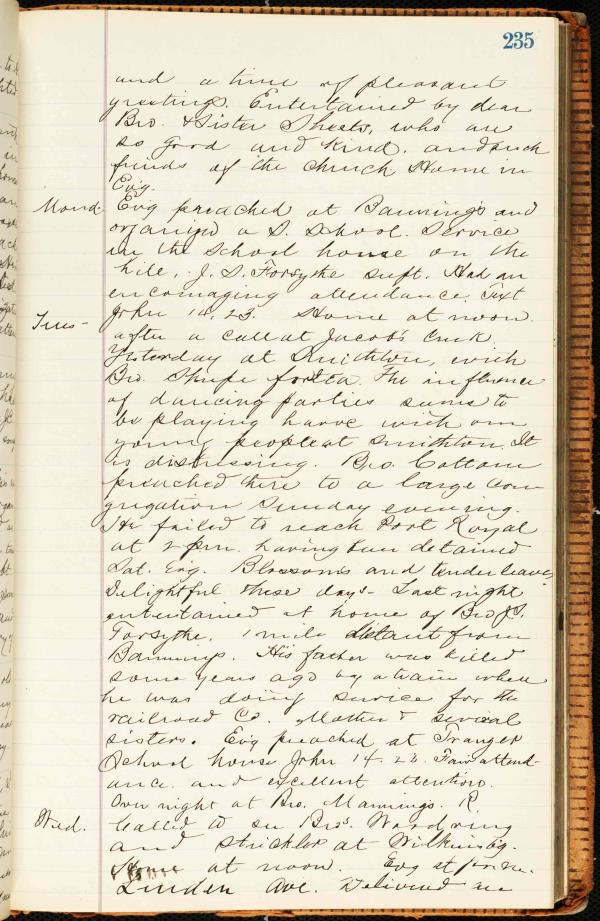 235
and a time of pleasant
greeting. Entertained by dear
Bro. & Sister Sheets, who are
so good and kind. and such
friends of the church Home in
Evg.
Mond. Evg preached at Banning's and
organized a S. School. Service
in the School house on the
hill, J. S. Forsythe supt. Had an
encouraging attendance. Text
Tues- John 14, 23. Home at noon
after a call at Jacob's Creek.
Yesterday at Smithton, with
Bro. Shupe for tea. The influence
of dancing parties seems to
be playing havoc with our
young people at Smithton. It
is distressing. Bro. Cottom
preached here to a large con
gregation Sunday evening.
He failed to reach Port Royal
at 2 pm. having been detained
Sat. Evg. Blossoms and tender leaves
Delightful these days- Last night
entertained at home of Bro J. S.
Forsythe, 1 mile distant from
Bannings. His father was killed
some years ago by a train when
he was doing service for the
railroad Co. Mother & several
sisters. Evg preached at Tranger
School house John 14. 23. Fair attend-
ance. and excellent attention.
Over night at Bro. Mannings. R.
Wed. Called to see Bros. Woodring
and Strickler at Wilkinsbg.
Home at noon. Evg at
Linden Ave. Delivered me